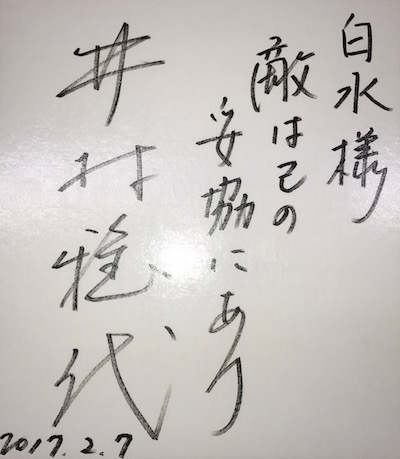 白水様
敵は己の
妥協にあり
井村雅代
2017.2.7